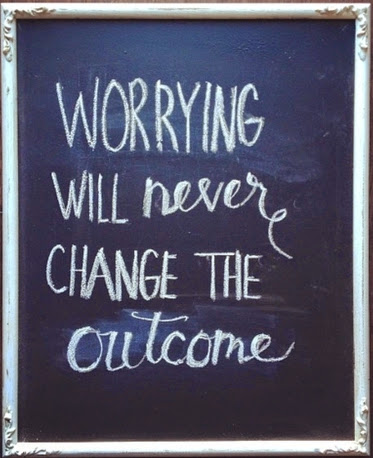 WORRYING
WILL never
CHANGE THE
outcome